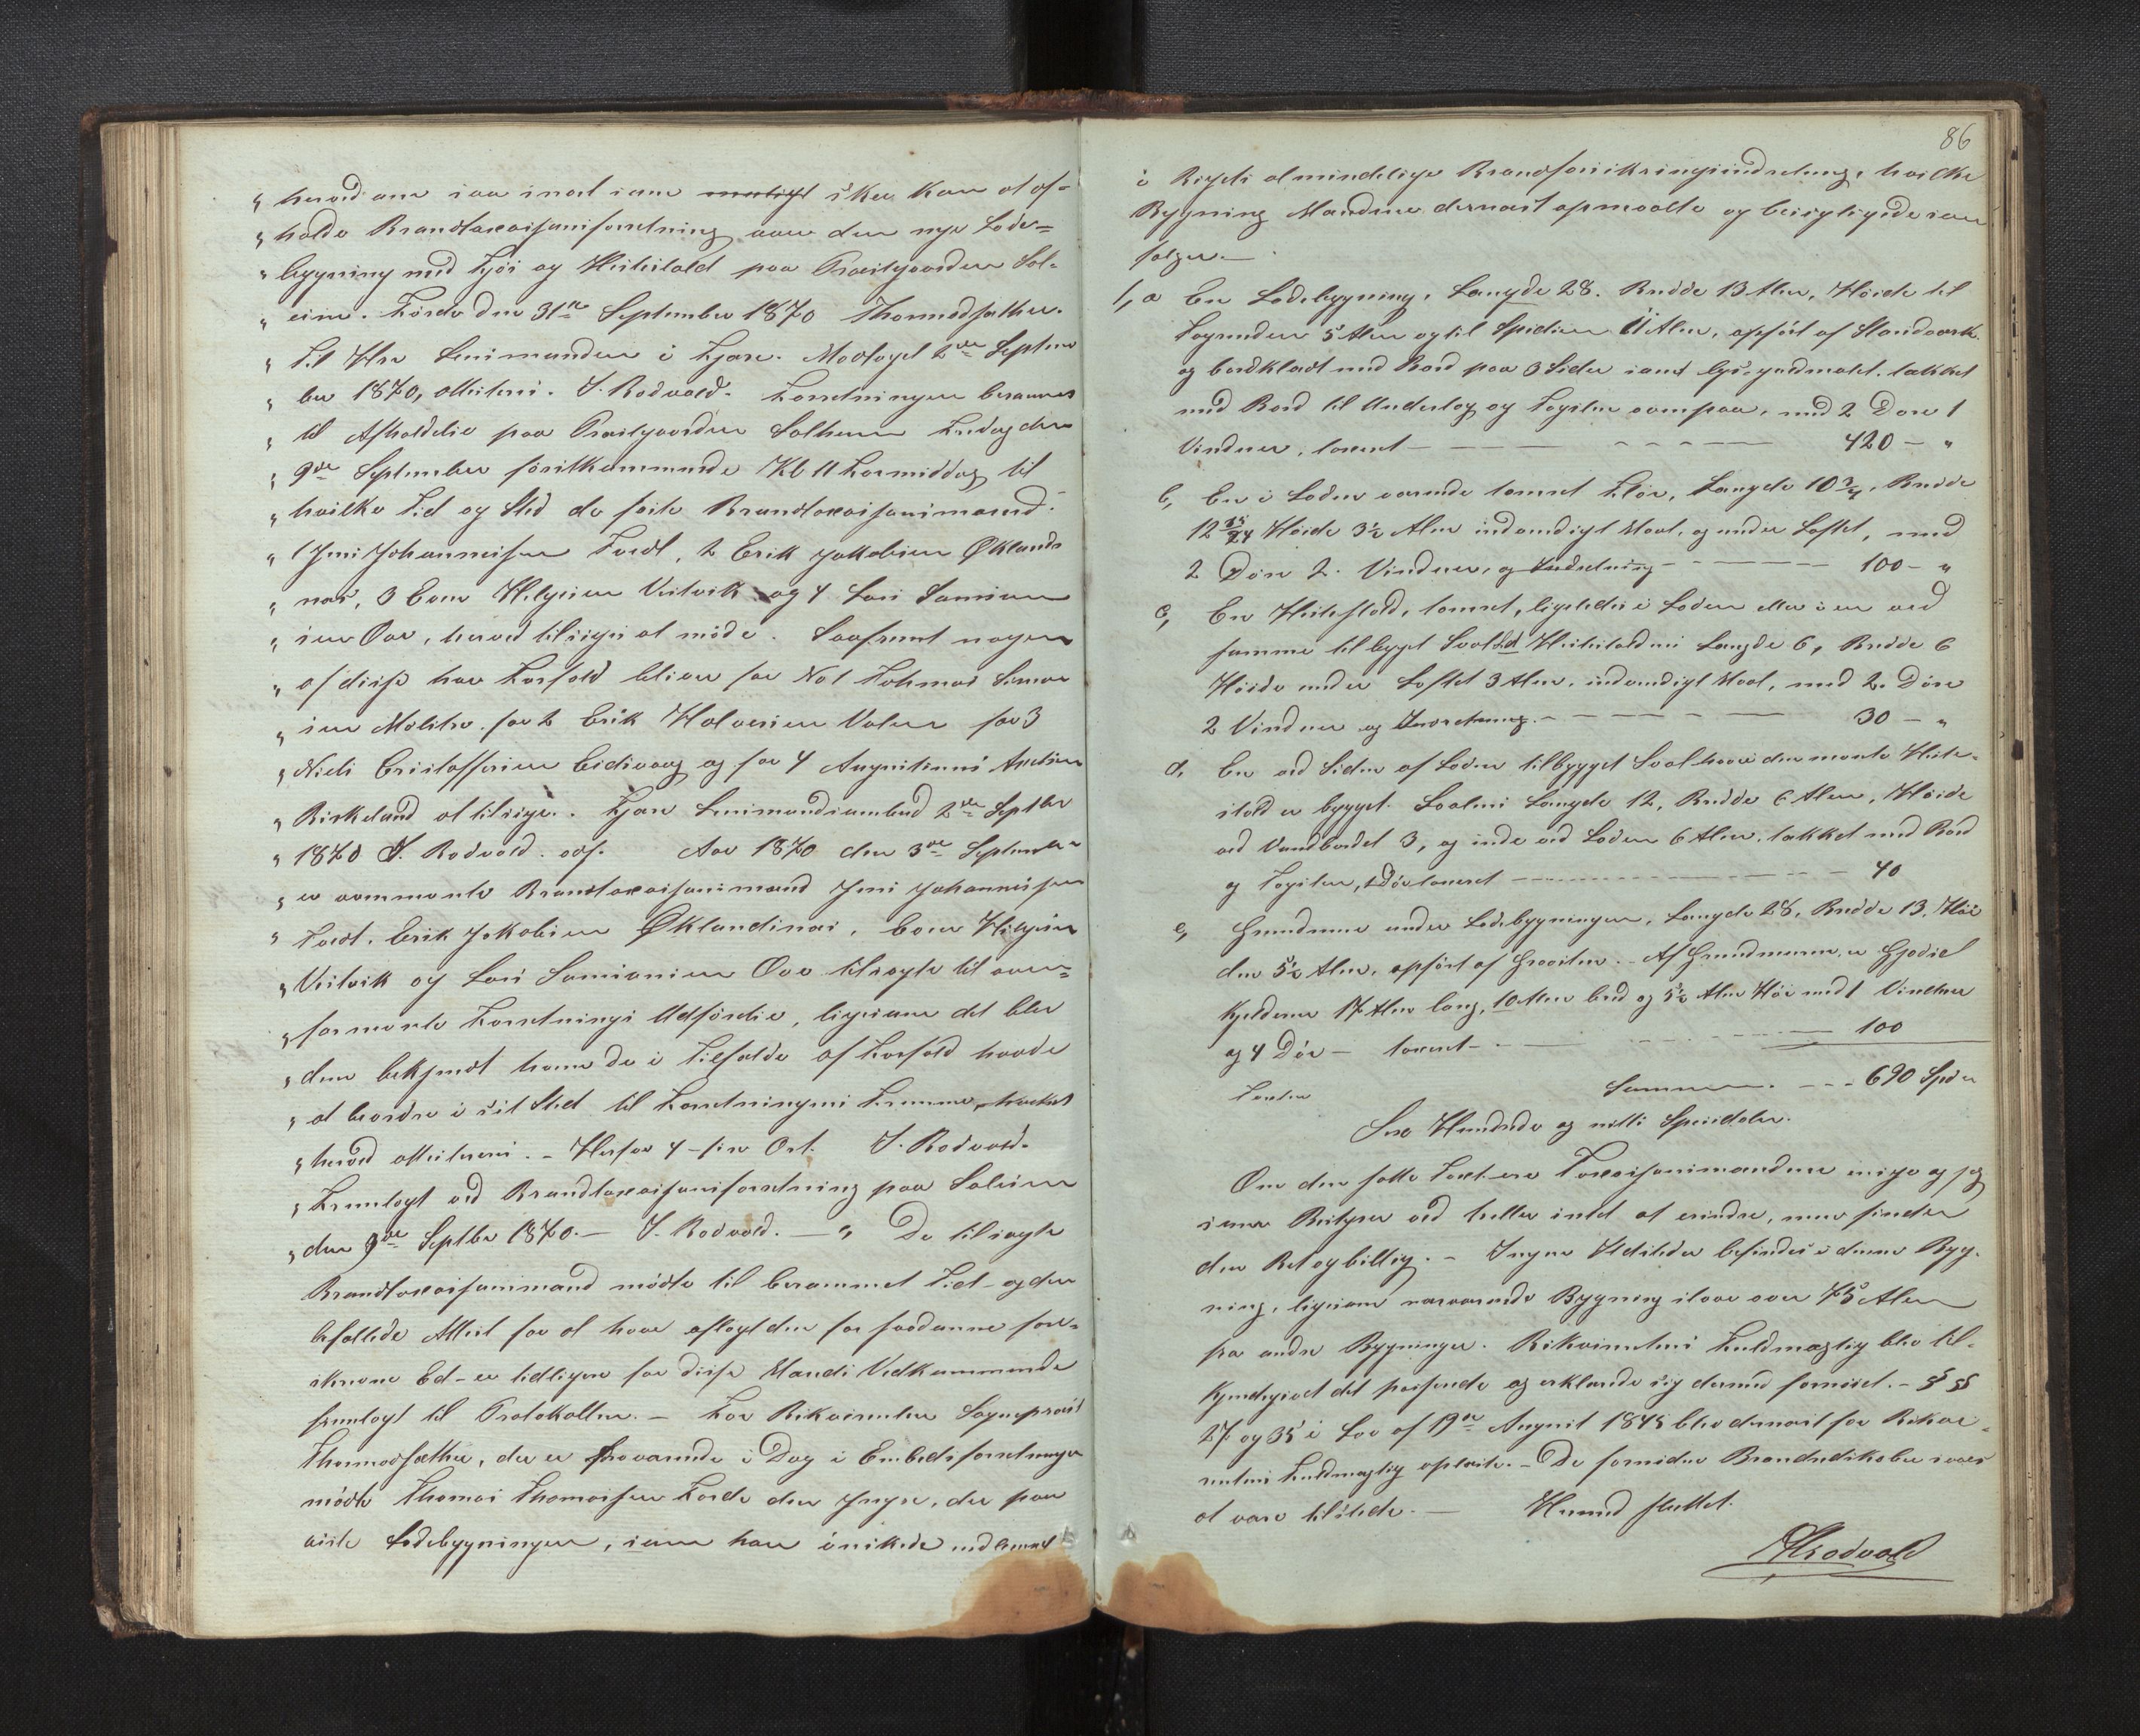 " herved om saa snart som muligt skee kan at af-
" holde Brandtaxasjonsforretning over den nye Lade-
" bygning med Fjøs og Hestestald paa Præstegaarden Sol-
" eim. Förde den 31te September 1870 Thormodsæther.
" Til Hr Lensmanden i Fjære. Modtaget 2den Septem
" ber 1870, Attesteres. J. Rodvold. Forretningen berammes
" til Afholdelse paa Præstgaarden Solheim Fredag den
" 9de September förstkommende Kl 11 Formiddag til
" hvilke Tid og Sted de faste Brandtaxasjonsmænd:
" 1 Jens Johannessen Tvedt, 2 Erik Jakobsen Øklands
" næs, 3 Ener Helgesen Vestvik og 4 Lars Samsons
" sen Ove, herved tilsiges at möde. Saafremt nogen
" af disse har Forfald bliver for No 1 Tohmas Simon
" sen Mölstre, for 2 Erik Halvorsen Valen for 3
" Niels Cristoffersen Eidsvaag og for 4 Augustinus
" Birkeland at tilsige. Fjære Lensmandsombud 2den Septbr
" 1870 J. Rodvold. Aar 1870 den 3die September
" er ovennævnte Brandtaxasjonsmænd Jens Johannessen
" Tvedt, Erik Jokobsen Øklandsnæs, Ener Helgesen
" Vestvik og Lars Samsonsen Ove tilsagte til oven-
" formente Forretnings Udförelse, ligesom det blev
" dem bekjendt hvem de i Tilfælde af Forfald havde
" at beordre i sit Sted til Forretningens Fremme, hvilket
" herved attesteres. - Herfor 4 - fire Ort. J. Rodvold.
" Fremlagt ved Brandtaxasjonsforretning paa Soleim
" den 9de Septbr 1870. — J. Rodvold. — " De tilsagte
Brandtaxasjonsmænd mödte til berammet Tid - og den
befallede Attest for at have aflagt den for saadanne fore-
skrevne Ed - er tidligere for disse Mænds Vedkommende
fremlagt til Protokollen. — For Rekvirenten Sogneprest
Thormodsæther, der er fraværende i Dag i Embedsforretninger
mödte Thomas Thomassen Förde den Yngre, der paa
viste Ladebygningen, som han önskede indlemmet
86
i Rigets almindelige Brandforsikringsindretning, hvilke
Bygning Mændene dernæst opmaalte og besigtigede som
fölger. —
1, a En Ladebygning, Længde 28. Bredde 13 Alen, Höide til
Tagrenden 5 Alen og til Spidsen 11 Alen, opfört af Standværk
og bordklædt med Bord paa 3 Sider samt lys. gulmalet. takket
med Bord til Underlag og Tagsten ovenpaa, med 2 Döre 1
Vindue, taxeret — — — — 420 — "
b, En i Laden værende tömret Flör, Længde 10 3/4, Bredde
12 15/24 Höide 3 1/2 Alen indvendigt Maal, og under Loftet, med
2 Döre 2. Vinduer, og Indretning — — — 100 — "
c, En Hestestald, tömret, ligeledes i Laden eller i en ved
samme tilbygget Sval, Hestestaldens Længde 6, Bredde 6
Höide under Loftet 3 Alen, indvendigt Maal, med 2 Döre
2 Vinduer og Indretning — — — 30 — "
d, En ved Siden af Laden tilbygget Sval hvori den nævnte Heste-
stald er bygget. Svalens Længde 12, Bredde 6 Alen, Höide
ved Vandbordet 3, og inde ved Laden 6 Alen, takket med Bord
og Tagsten, 1 Dör taxeret — — — 40
e, Grundmur under Ladebygningen, Længde 28, Bredde 13, Höi
den 5 1/2 Alen, opfört af Graasten. - Af Grundmuren er Gjödsel
Kjelderen 17 Alen lang, 10 Alen bred og 5 1/2 Alen Höi med 1 Vindue
og 4 Dör — taxeret — — — 100
Summen. — — 690 Spd
Sex Hundrede og nitti Speisdaler.
Om den satte Taxt ere Taxasjonsmændene enige og jeg
som Bestyrer ved heller intet at erindre, men finder
den Ret og billig. — Ingen Ildsteder befindes i denne Byg-
ning, ligesom nærværende Bygning staar over 75 Alen
fra andre Bygninger. Rekvirentens Fuldmægtig blev til-
kjendegivet det passerede og erklærede sig dermed fornöiet. - § §
27 og 35 i Lov af 19de August 1845 blev dernæst for Rekvi-
rentens Fuldmægtig oplæste. - De fornödne Brandredskaber
at være tilstede. — Hermed sluttet.
JRodvold